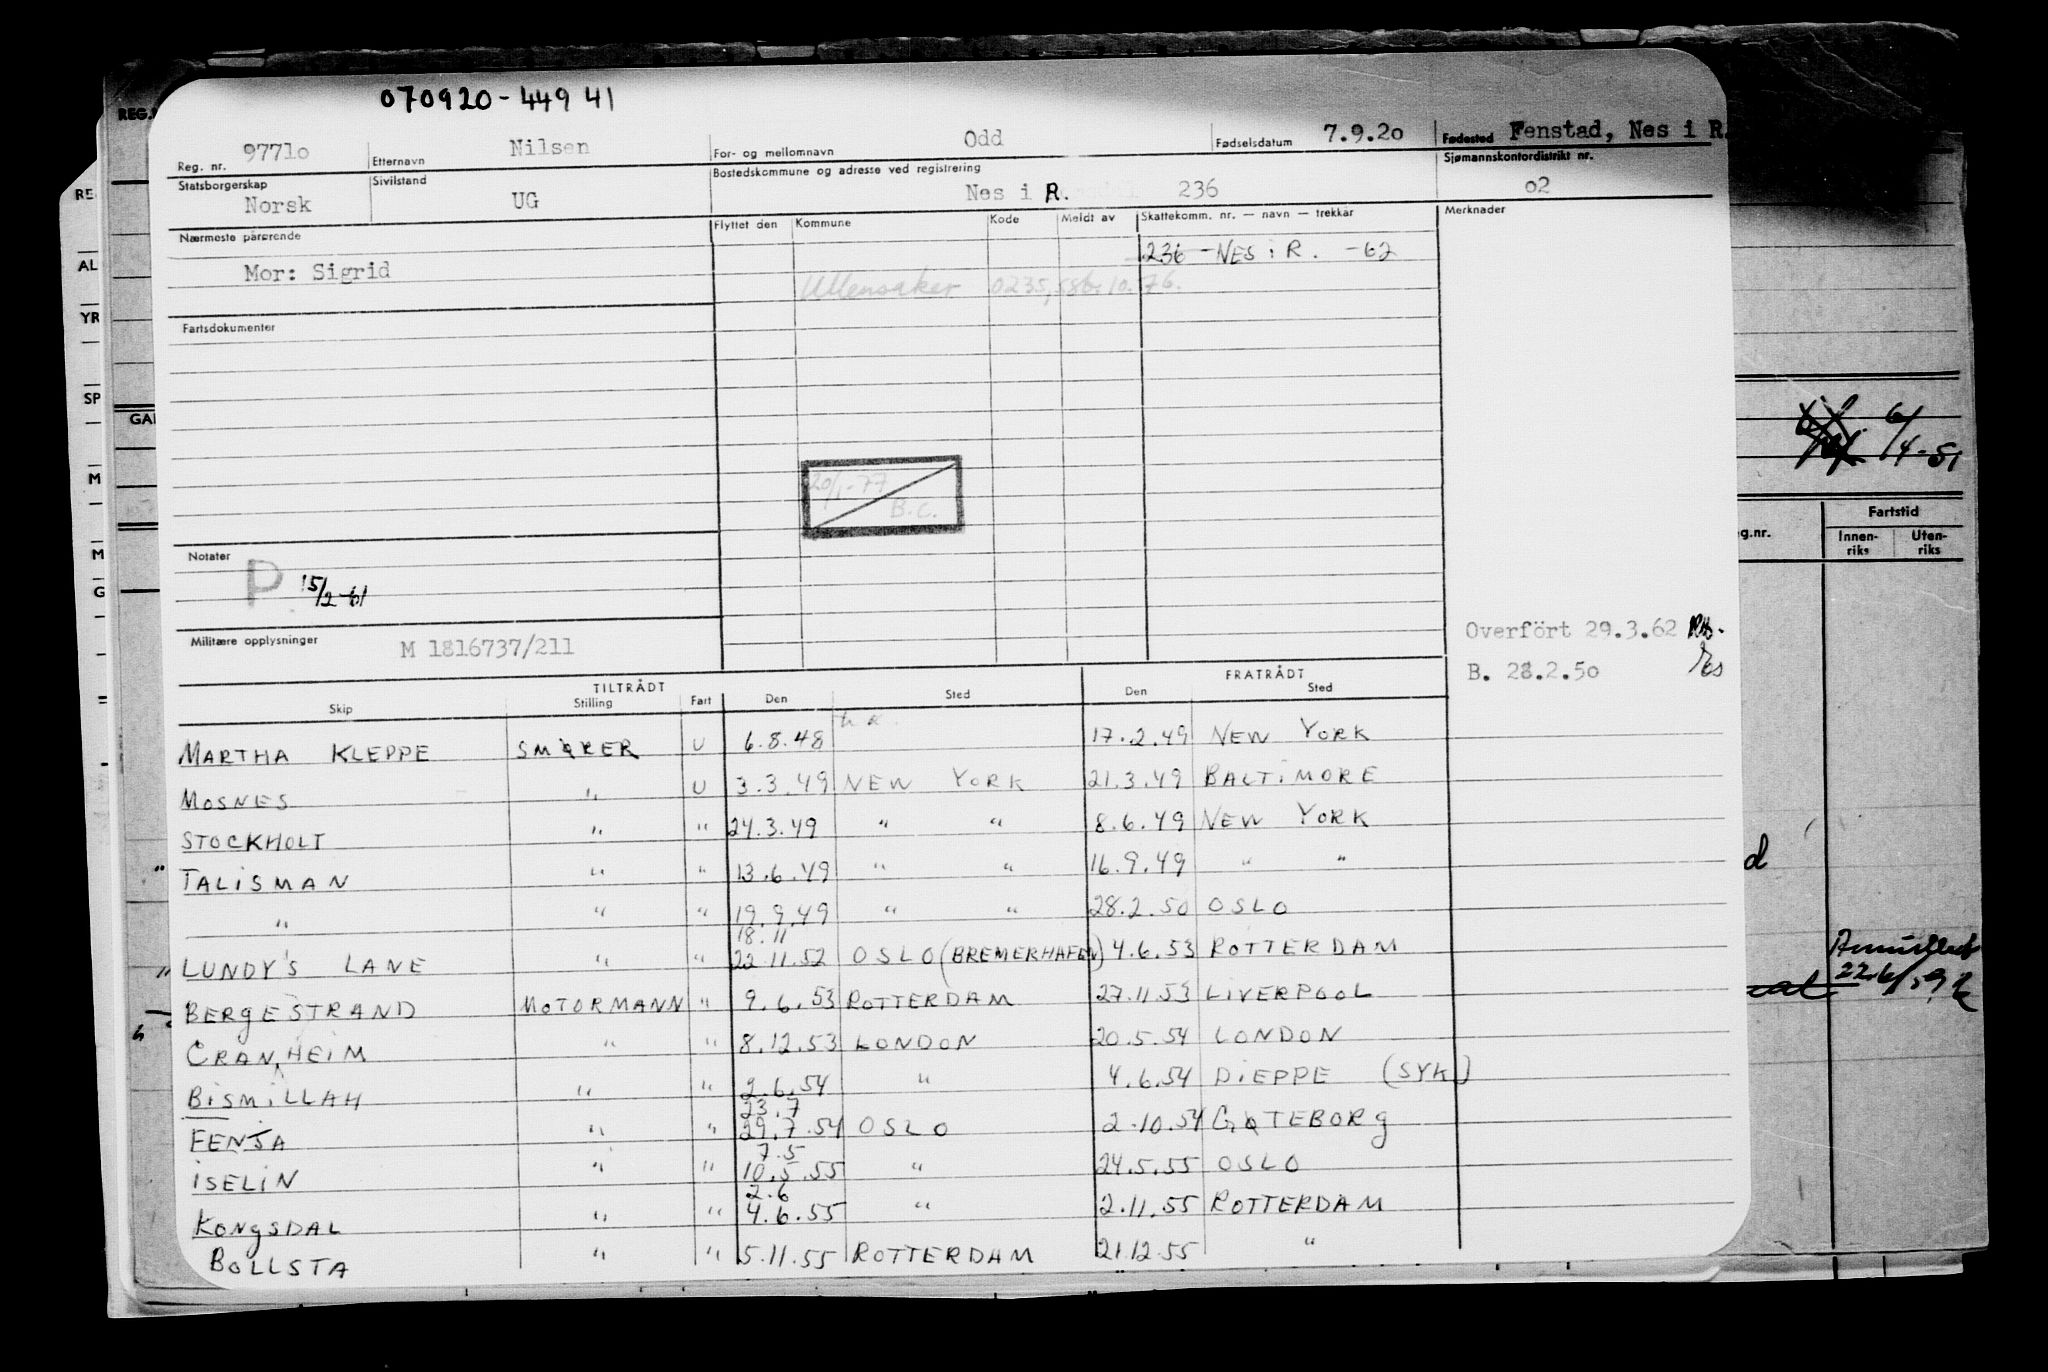 070920-44941
Reg. nr. 97710 Etternavn Nilsen For- og mellomnavn Odd Fødselsdatum 7.9.20 Fødested Fenstad, Nes i R.
Statsborgerskap Norsk Sivilstand UG Bostedskommune og adresse ved registrering Nes i R. 236 Sjømannskontordistrikt nr. 02
Nærmeste pårørende Flyttet den Kommune Kode Meldt av Skattekomm. nr. — navn — trekkår Merknader
Mor: Sigrid 236 - NES i R. -62
Ullensaker 0235, 10.76.
Fartsdokumenter
20/1-77
B.C.
Notater
P 15/2-61
Militære opplysninger M 1816737/211
Overfört 29.3.62
B. 28.2.50
TILTRÅDT FRATRÅDT
Skip Stilling Fart Den Sted Den Sted
MARTHA KLEPPE SMØRER U 6.8.48 17.2.49 NEW YORK
MOSNES " U 3.3.49 NEW YORK 21.3.49 BALTIMORE
STOCKHOLT " " 24.3.49 " " 8.6.49 NEW YORK
TALISMAN " " 13.6.49 " " 16.9.49 " "
" " " 19.9.49 " " 28.2.50 OSLO
18.11
LUNDY'S LANE " " 22.11.52 OSLO (BREMERHAFEN) 4.6.53 ROTTERDAM
BERGESTRAND MOTORMANN " 9.6.53 ROTTERDAM 27.11.53 LIVERPOOL
CRANHEIM " " 8.12.53 LONDON 20.5.54 LONDON
BISMILLAH " " 2.6.54 " 4.6.54 DIEPPE (SYK)
23.7
FENJA " " 29.7.54 OSLO 2.10.54 GØTEBORG
7.5
ISELIN " " 10.5.55 " 24.5.55 OSLO
2.6
KONGSDAL " " 4.6.55 " 2.11.55 ROTTERDAM
BOLLSTA " " 5.11.55 ROTTERDAM 21.12.55 "
REG.
RE
AL
YR
SP
GA
M
M
G
6/4-51
Fartstid
g.nr. Innen-riks Uten-riks
d